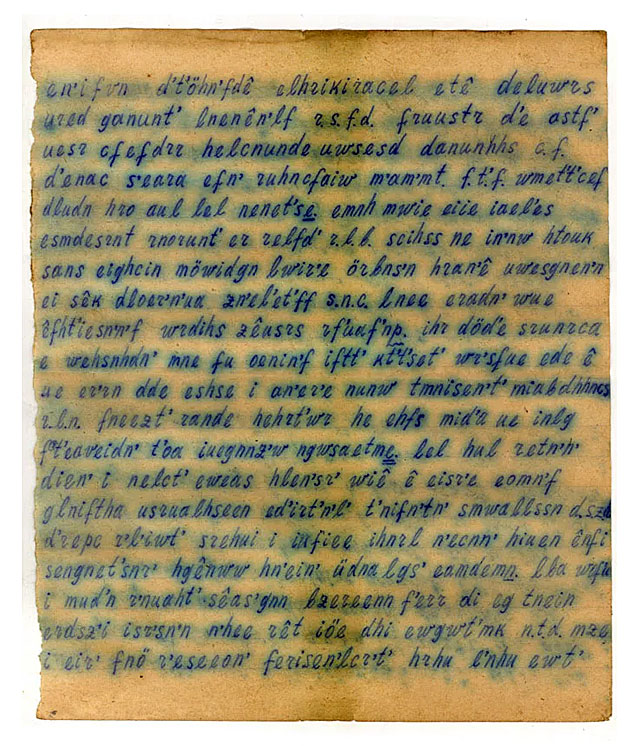 en'ifvn d't'öhn'fdê elhrikiracel etê deluwrs
ured ganunt' lnenên'lf r.s.f.d. fruustr d'e astf'
uesr cfefdrr helcnunde uwsesd danunhhs c.f.
d'enac s'eara efn' ruhncfaiw m'am'mt. f.t'.f. wmet't'cef
dludn hro aul lel nenet's e. emnh mwie eiie iael'es
esmdesrnt rnorunt' er relfd' r.l.l. scihss ne in'nw htouk
sans eighcin möwidgn lwir'e örbns'n hran'ê uwesgnen'n
ei sêk dloer'n'ua zn'el'et'ff s.n.c. lnee eradn' wue
êfht'iesn'n'f wrdihs zêusrs rf'uaf'np. ihr död'e srunrca
e wehsnhdn' mne fu oenin'f iftt' kt't'set' wr'sfue ede ê
ue er'rn dde eshse i an'er'e nunw tmnisen't' miabdhhncs
r.l.n. fneezt' rande hehrt'wr he ehfs mid'a ue inlg
f't'eaveidn' t'oa iuegnniz'w ngwsaetme. lel hul retn'h'
dien' i nelct' eweas hlen'sr' wiê ê eisr'e eomn'f
glniftha usrualhseen ed'irt'n'l' t'nifn'tn' smwallssn
d'repc r'l'iwt' srehui i iufiee ihnrl n'ecnn' hiuen ênfi
sengnet'snr' hgênww hn'ein' üdna lgs' eamdemn. lba
i mud'n r'nuaht' sêas'gnn lzereenn f'rrr di eg tnein
erdsz'i isr'sn'n n'hee rêt iöe dhi ewgwt'mk n.t.d. mze
i eir' fnö r'eseeon' ferisen'lcr't' hrhu l'nhu ewt'